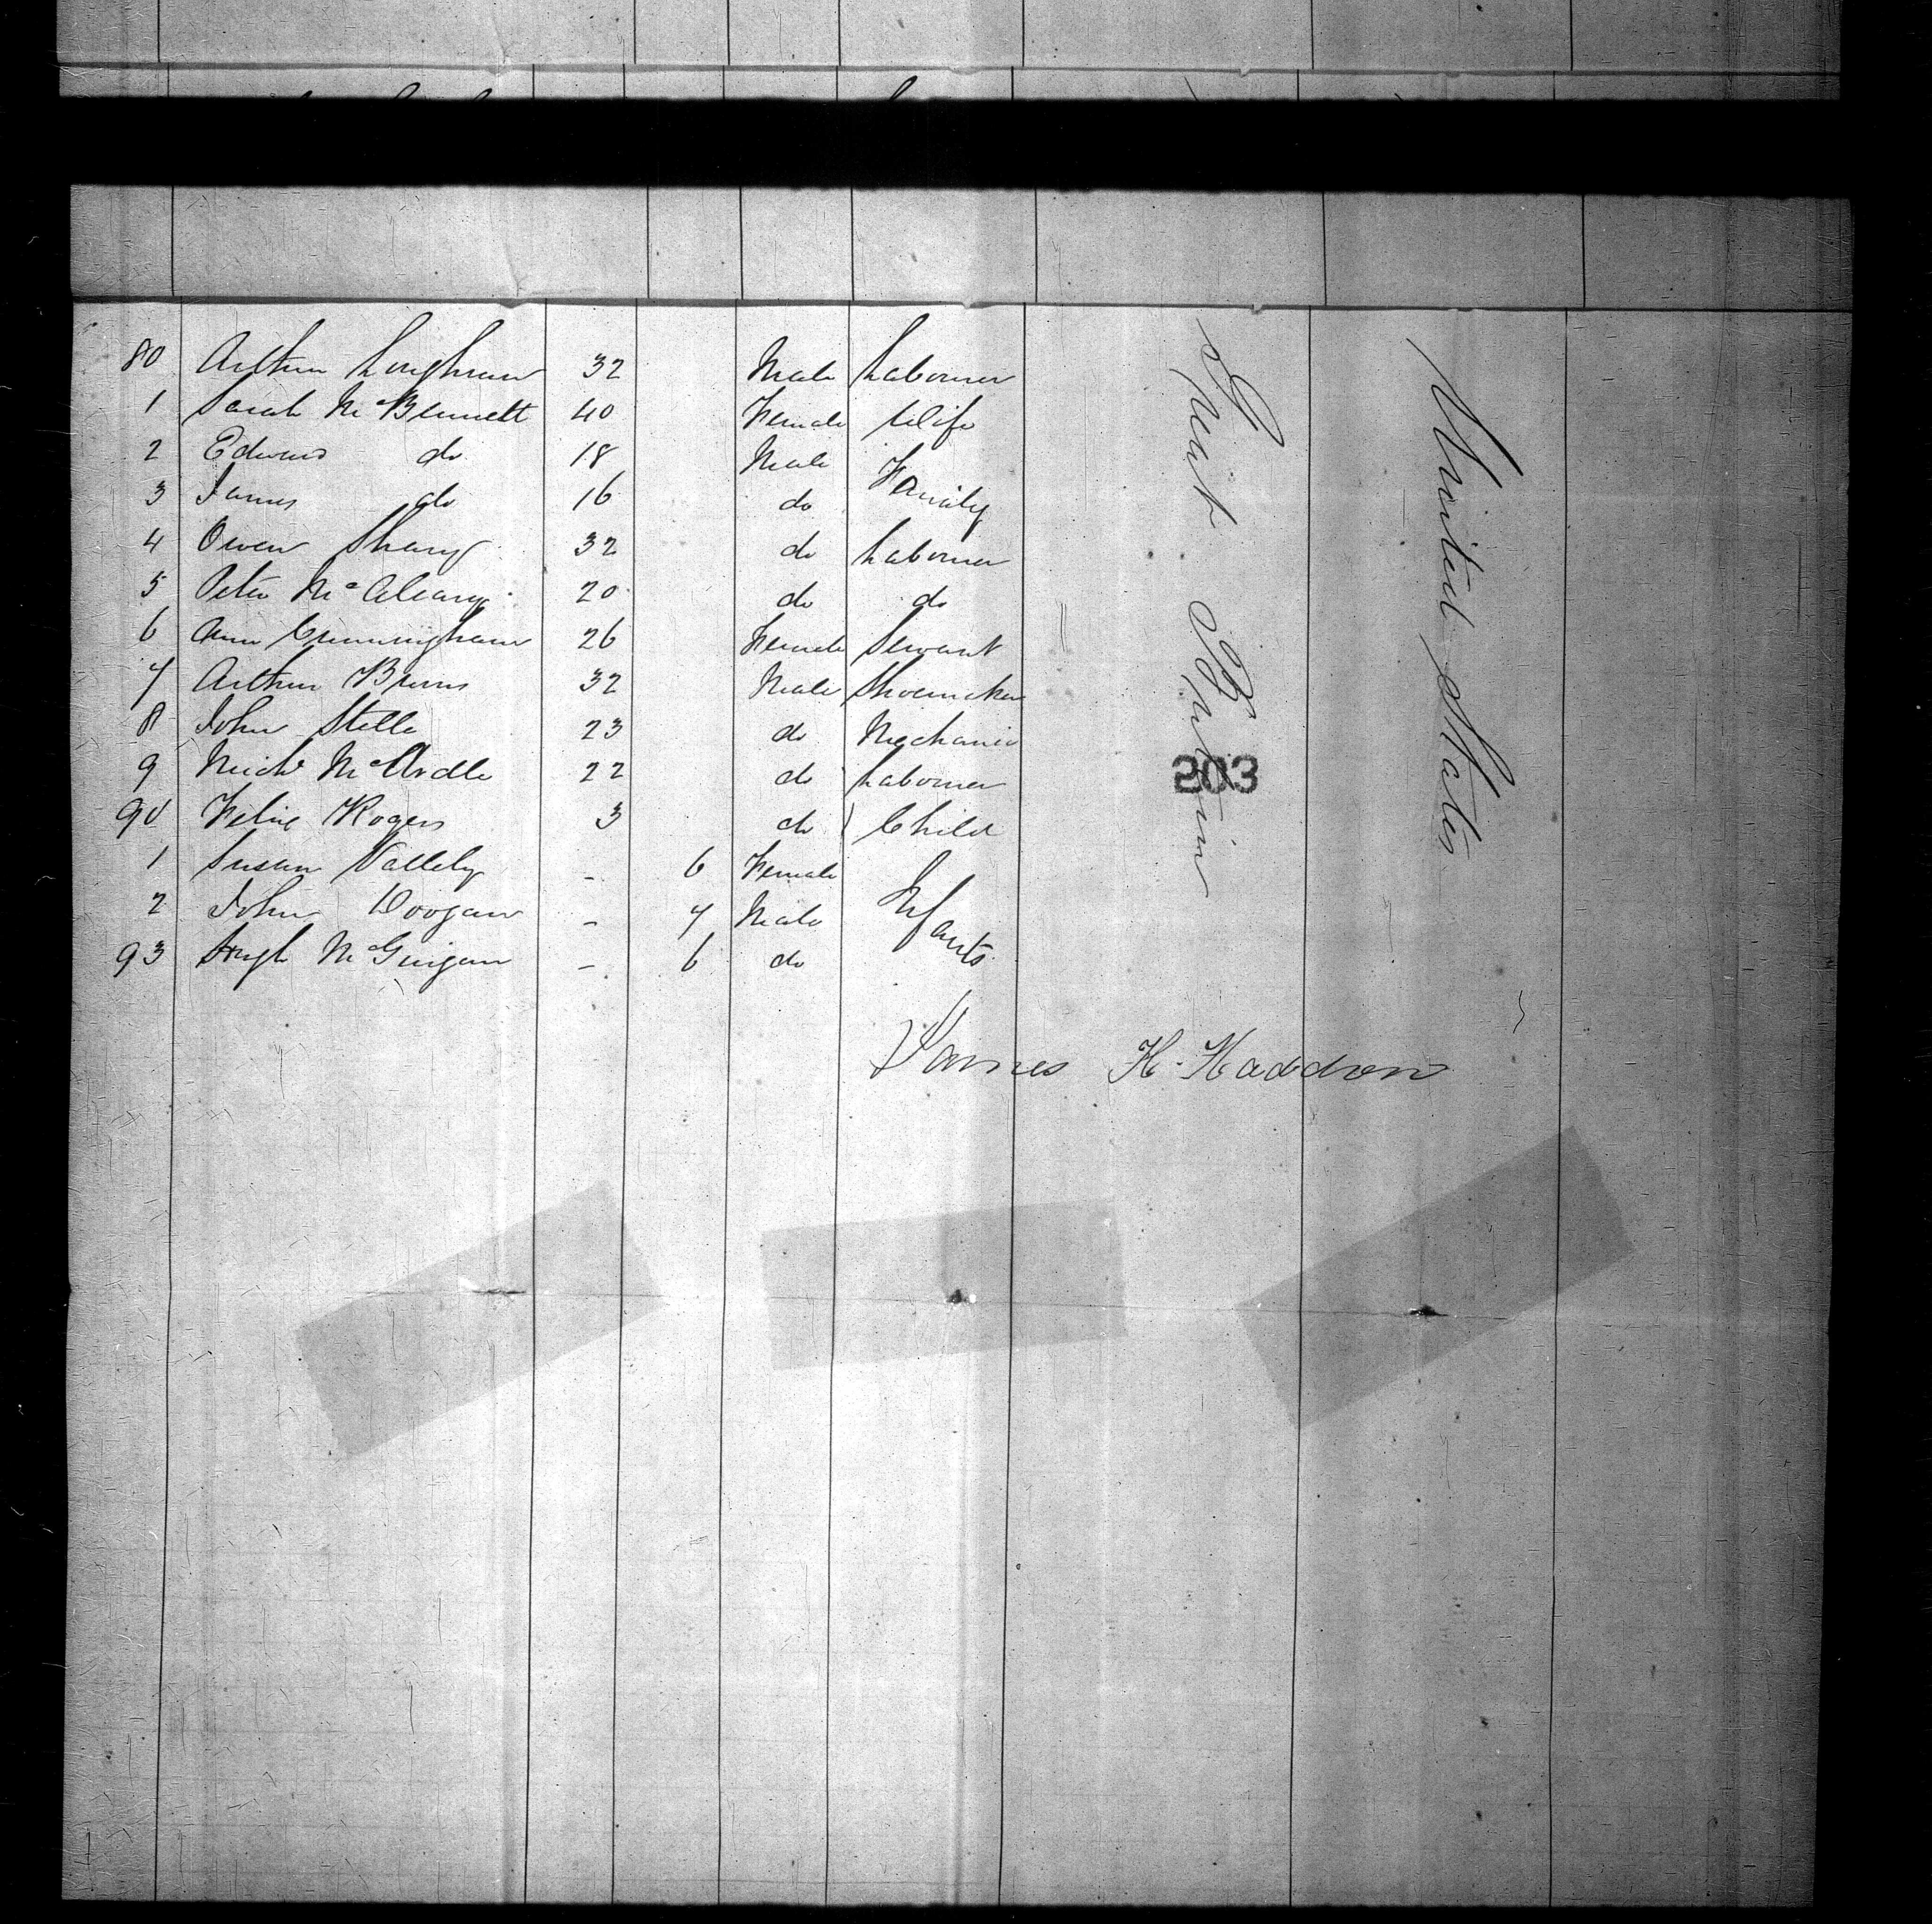 80 Arthur Loughran 32 Male Laborer
1 Sarah McBennett 40 Female Wife
2 Edward do 18 Male Family
3 James do 16 do
4 Owen Sharp 32 do Laborer
5 Peter McAleary 20 do do
6 Ann Cunningham 26 Female Servant
7 Arthur Burns 32 Male Shoemaker
8 John Stelle 23 do Mechanic
9 Mich McArdle 22 do Laborer
90 Felix Rogers 3 do Child
1 Susan Vallely - 6 Female Infants
2 John Doogan - 7 Male
93 Hugh McGuigan - 6 do
Great Britain
United States
203
James H. Haddon